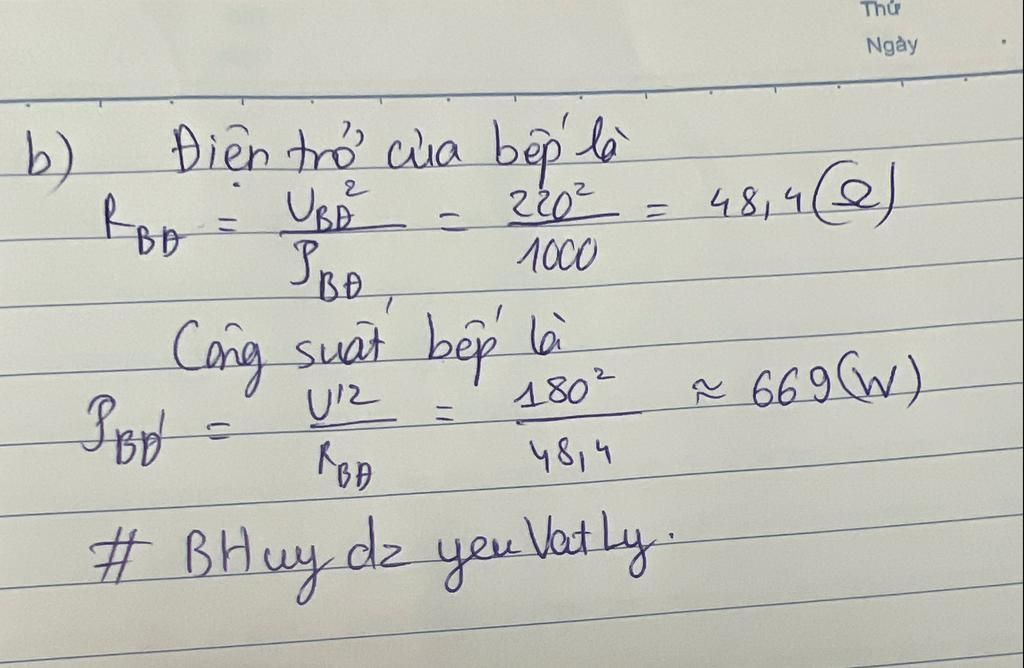 Thứ
Ngày
b) Điện trở của bếp là
R_BĐ = U_BĐ² / P_BĐ = 220² / 1000 = 48,4 (Ω)
Công suất bếp là
P_BĐ' = U'² / R_BĐ = 180² / 48,4 ≈ 669 (W)
# BHuy dz yeu VatLy.